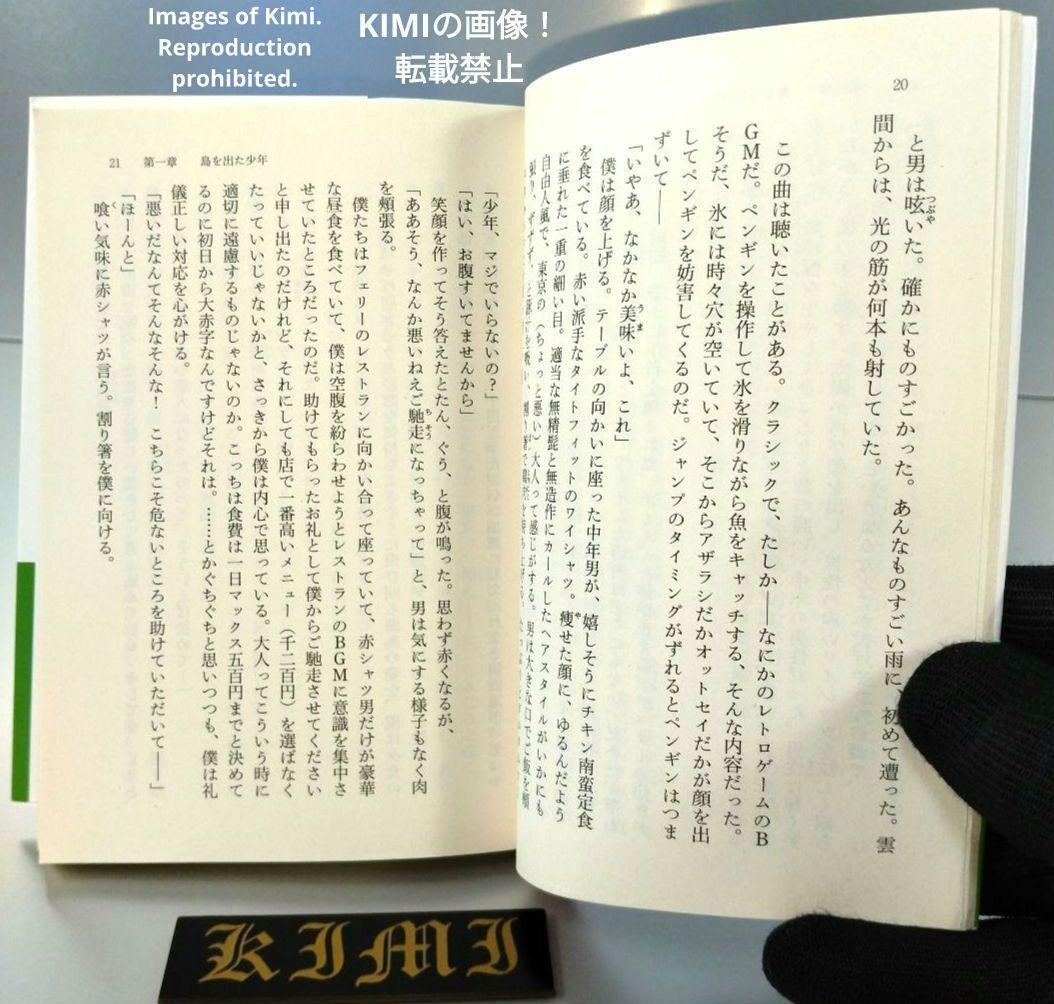 Images of Kimi.
Reproduction
prohibited.
KIMIの画像！
転載禁止
20
と男は呟いた。確かにものすごかった。あんなものすごい雨に、初めて遭った。雲
間からは、光の筋が何本も射していた。
この曲は聴いたことがある。クラシックで、たしか――なにかのレトロゲームのB
GMだ。ペンギンを操作して氷を滑りながら魚をキャッチする、そんな内容だった。
そうだ、氷には時々穴が空いていて、そこからアザラシだかオットセイだかが顔を出
してペンギンを妨害してくるのだ。ジャンプのタイミングがずれるとペンギンはつま
ずいて――
「いやあ、なかなか美味いよ、これ」
僕は顔を上げる。テーブルの向かいに座った中年男が、嬉しそうにチキン南蛮定食
を食べている。赤い派手なタイトフィットのワイシャツ。痩せた顔に、ゆるんだよう
に垂れた一重の細い目。適当な無精髭と無造作にカールしたヘアスタイルがいかにも
自由人風で、東京の（ちょっと悪い）大人って感じがする。男は大きな口でご飯を頬
張り、ずずず、と
21 第一章 島を出た少年
「少年、マジでいらないの？」
「はい、お腹すいてませんから」
笑顔を作ってそう答えたとたん、ぐう、と腹が鳴った。思わず赤くなるが、
「ああそう、なんか悪いねえご馳走になっちゃって」と、男は気にする様子もなく肉
を頬張る。
僕たちはフェリーのレストランに向かい合って座っていて、赤シャツ男だけが豪華
な昼食を食べていて、僕は空腹を紛らわせようとレストランのBGMに意識を集中さ
せていたところだったのだ。助けてもらったお礼として僕からご馳走させてください
と申し出たのだけれど、それにしても店で一番高いメニュー（千二百円）を選ばなく
たっていいじゃないかと、さっきから僕は内心で思っている。大人ってこういう時に
適切に遠慮するものじゃないのか。こっちは食費は一日マックス五百円までと決めて
るのに初日から大赤字なんですけどそれは。……とかぐちぐちと思いつつも、僕は礼
儀正しい対応を心がける。
「悪いだなんてそんなそんな！　こちらこそ危ないところを助けていただいて――」
「ほーんと」
喰い気味に赤シャツが言う。割り箸を僕に向ける。
KIMI